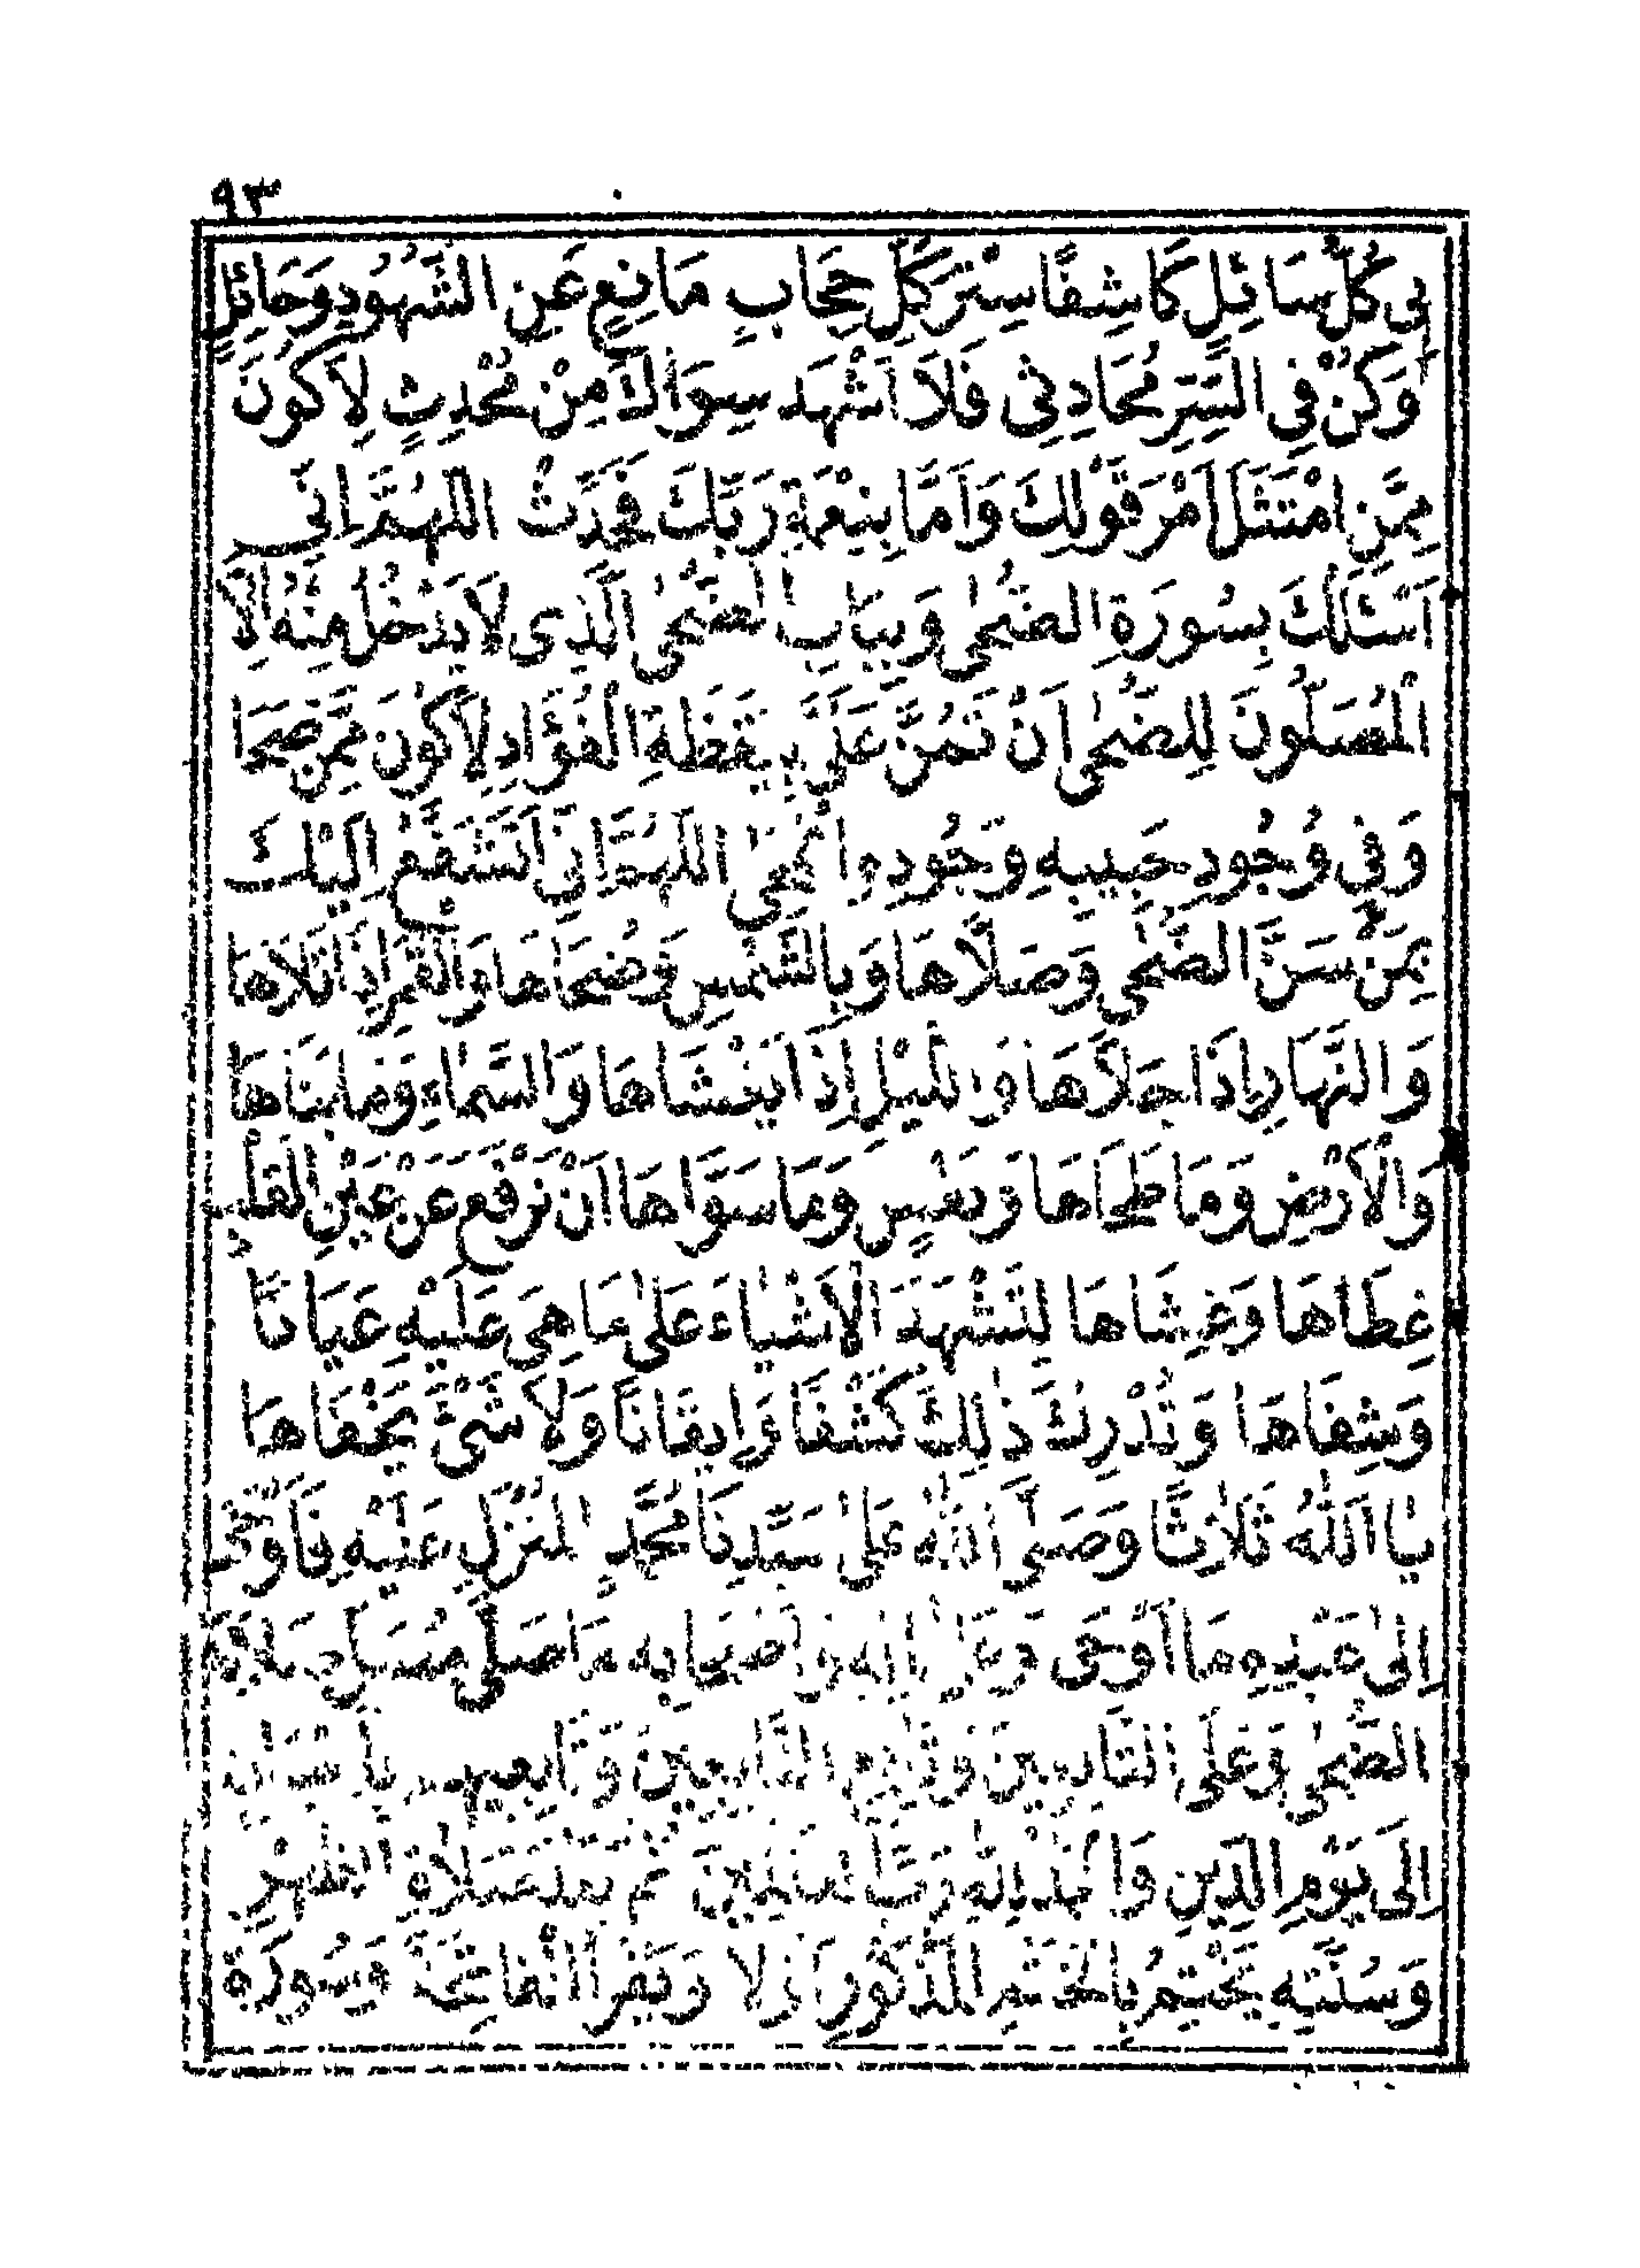 ٩٣
بِى كُلُّ سَائِلٍ كَاشِفًا سِتْرَ كُلِّ حِجَابٍ مَانِعٍ عَنِ الشُّهُودِ وَحَائِلٍ
وَكُنْ فِى السِّرِّ مُحَادِثِى فَلَا اَشْهَدَ سِوَاكَ مِنْ مُحْدِثٍ لِاَكُونَ
مِمَّنِ امْتَثَلَ اَمْرَ قَوْلِكَ وَاَمَّا بِنِعْمَةِ رَبِّكَ فَحَدِّثْ اللّٰهُمَّ اِنِّى
اَسْئَلُكَ بِسُورَةِ الضُّحٰى وَبِبَابِ الضُّحٰى الَّذِى لَا يَدْخُلُ مِنْهُ اِلَّا
الْمُصَلُّونَ لِلضُّحٰى اَنْ تَمُنَّ عَلَىَّ بِيَقَظَةِ الْفُؤَادِ لِاَكُونَ مِمَّنْ صَحَا
وَفِى وُجُودِ حَبِيبِهِ وَجُودِهِ انْمَحٰى اللّٰهُمَّ اِنِّى اَتَشَفَّعُ اِلَيْكَ
بِمَنْ سَنَّ الضُّحٰى وَصَلَّاهَا وَبِالشَّمْسِ وَضُحَاهَا وَالْقَمَرِ اِذَا تَلَاهَا
وَالنَّهَارِ اِذَا جَلَّاهَا وَاللَّيْلِ اِذَا يَغْشَاهَا وَالسَّمَاءِ وَمَا بَنَاهَا
وَالْاَرْضِ وَمَا طَحَاهَا وَنَفْسٍ وَمَا سَوَّاهَا اَنْ تَرْفَعَ عَنْ عَيْنِ الْقَلْبِ
غِطَاهَا وَغِشَاهَا لِتَشْهَدَ الْاَشْيَاءَ عَلٰى مَا هِىَ عَلَيْهِ عَيَانًا
وَشِفَاهَا وَتُدْرِكَ ذٰلِكَ كَشْفًا وَاِيقَانًا وَلَا شَىْءَ يَخْفَاهَا
يَا اَللّٰهُ ثَلَاثًا وَصَلَّى اللّٰهُ عَلٰى سَيِّدِنَا مُحَمَّدٍ الْمُنْزَلِ عَلَيْهِ فَاَوْحٰى
اِلٰى عَبْدِهِ مَا اَوْحٰى وَعَلٰى اٰلِهِ وَاَصْحَابِهِ مَا صَلَّى مُصَلٍّ صَلَاةَ
الضُّحٰى وَعَلَى التَّابِعِينَ وَتَابِعِ التَّابِعِينَ وَتَابِعِيهِمْ بِاِحْسَانٍ
اِلٰى يَوْمِ الدِّينِ وَالْحَمْدُ لِلّٰهِ رَبِّ الْعَالَمِينَ ثُمَّ بَعْدَ صَلَاةِ الظُّهْرِ
وَسُنَّتِهِ يَخْتِمُ بِالْخَتْمِ الْمَذْكُورِ اَوَّلًا وَيَقْرَأُ الْفَاتِحَةَ وَسُورَةَ